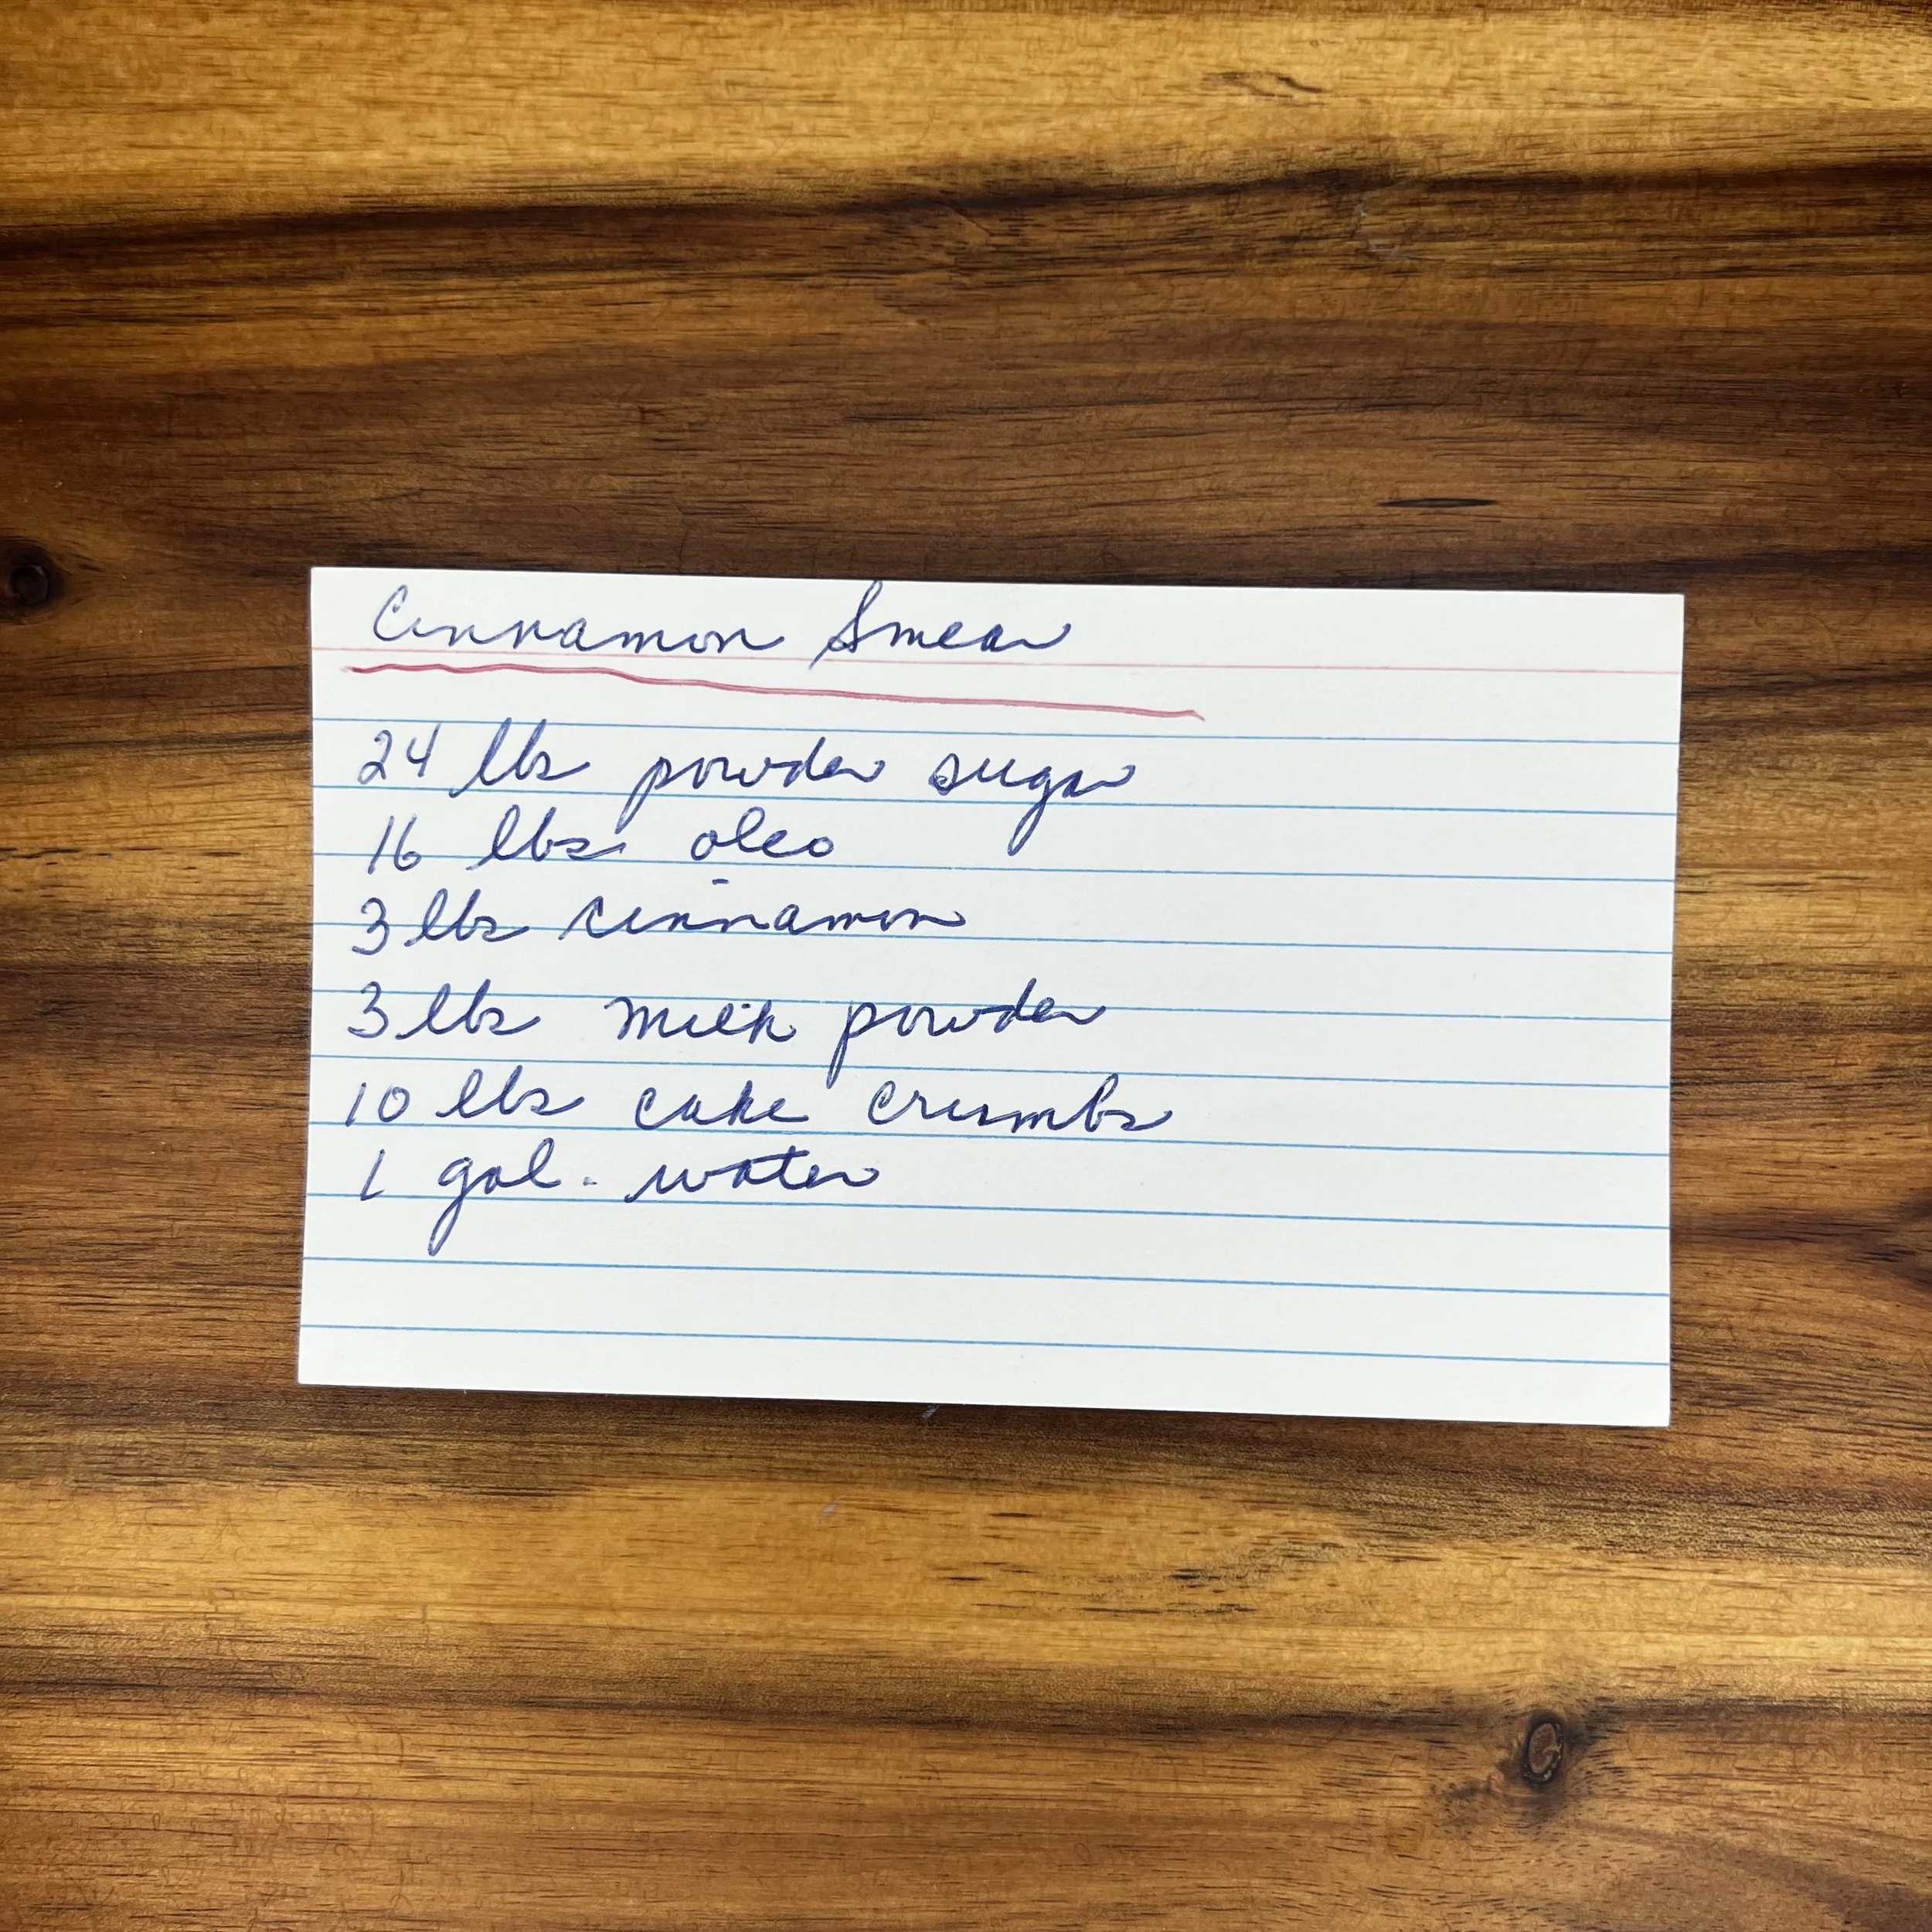 Cinnamon Smear
24 lbs powder sugar
16 lbs. oleo
3 lbs cinnamon
3 lbs milk powder
10 lbs cake crumbs
1 gal. water